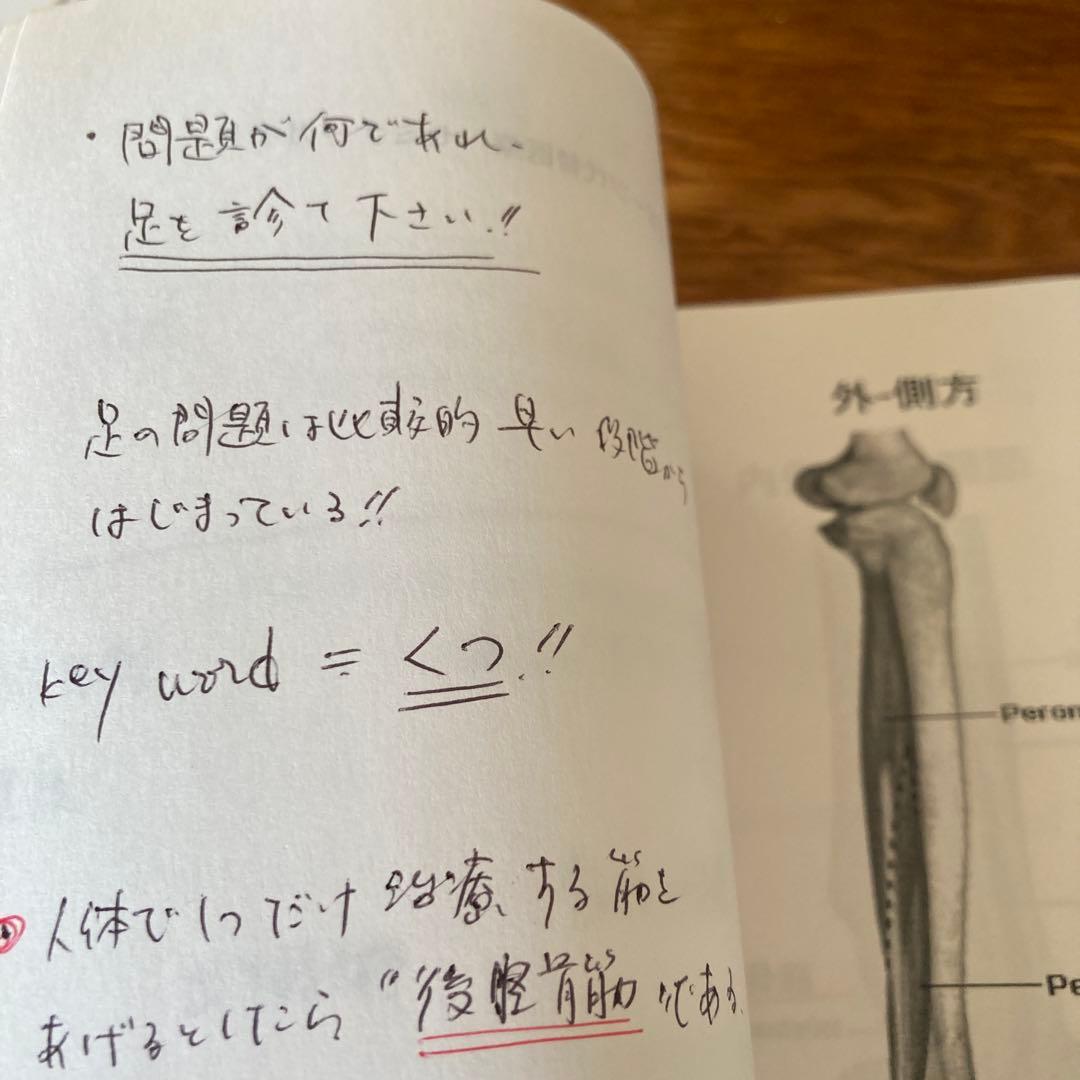 ・問題が何であれ、
足を診て下さい!!
足の問題は比較的早い段階から
はじまっている!!
key word = くつ!!
人体で1つだけ治療する筋を
あげるとしたら"後脛骨筋"である。
外-側方
Peron
Pe